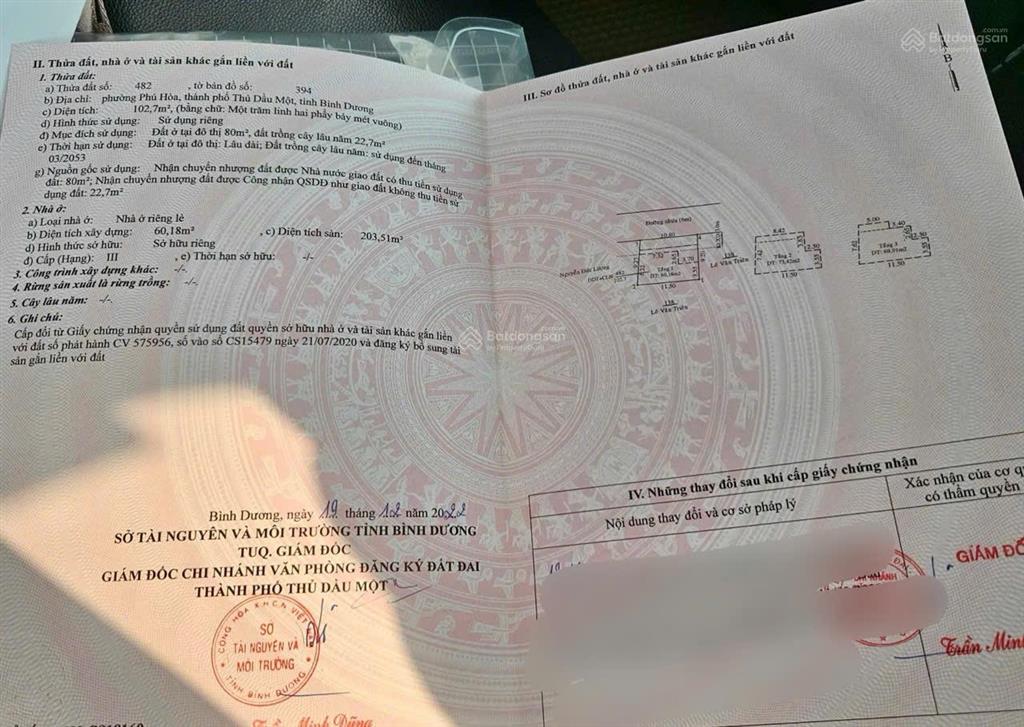 II. Thửa đất, nhà ở và tài sản khác gắn liền với đất
1. Thửa đất:
a) Thửa đất số: 482 , tờ bản đồ số: 394
b) Địa chỉ: phường Phú Hòa, thành phố Thủ Dầu Một, tỉnh Bình Dương
c) Diện tích: 102,7m², (bằng chữ: Một trăm linh hai phẩy bảy mét vuông)
d) Hình thức sử dụng: Sử dụng riêng
đ) Mục đích sử dụng: Đất ở tại đô thị 80m², đất trồng cây lâu năm 22,7m²
e) Thời hạn sử dụng: Đất ở tại đô thị: Lâu dài; Đất trồng cây lâu năm: sử dụng đến tháng
03/2053
g) Nguồn gốc sử dụng: Nhận chuyển nhượng đất được Nhà nước giao đất có thu tiền sử dụng
đất: 80m²; Nhận chuyển nhượng đất được Công nhận QSDĐ như giao đất không thu tiền sử
dụng đất: 22,7m²
2. Nhà ở:
a) Loại nhà ở: Nhà ở riêng lẻ
b) Diện tích xây dựng: 60,18m² , c) Diện tích sàn: 203,51m²
d) Hình thức sở hữu: Sở hữu riêng
đ) Cấp (Hạng): III , e) Thời hạn sở hữu: -/-
3. Công trình xây dựng khác: -/-
4. Rừng sản xuất là rừng trồng: -/-
5. Cây lâu năm: -/-
6. Ghi chú:
Cấp đổi từ Giấy chứng nhận quyền sử dụng đất quyền sở hữu nhà ở và tài sản khác gắn liền
với đất số phát hành CV 575956, số vào sổ CS15479 ngày 21/07/2020 và đăng ký bổ sung tài
sản gắn liền với đất
Bình Dương, ngày 19 tháng 12 năm 2022
SỞ TÀI NGUYÊN VÀ MÔI TRƯỜNG TỈNH BÌNH DƯƠNG
TUQ. GIÁM ĐỐC
GIÁM ĐỐC CHI NHÁNH VĂN PHÒNG ĐĂNG KÝ ĐẤT ĐAI
THÀNH PHỐ THỦ DẦU MỘT
CỘNG HÒA X.H.C.N VIỆT
SỞ
TÀI NGUYÊN VÀ
MÔI TRƯỜNG
TỈNH BÌNH DƯƠNG
Trần Minh Dũng
III. Sơ đồ thửa đất, nhà ở và tài sản khác gắn liền với đất
B
Đường nhựa (6m)
10.80
Nguyễn Đức Lương
482
Tầng 1
DT: 60,18m²
11.50
138
Lê Văn Triên
138
Lê Văn Triên
8.42
Tầng 2
DT: 73,42m²
2.50
11.50
5.00
3.40
7.62
Tầng 3
2.50
11.50
IV. Những thay đổi sau khi cấp giấy chứng nhận
Nội dung thay đổi và cơ sở pháp lý
Xác nhận của cơ qu
có thẩm quyền
NHÁNH
GIÁM ĐỐ
Trần Minh
Batdongsan
Batdongsan
by PropertyGuru